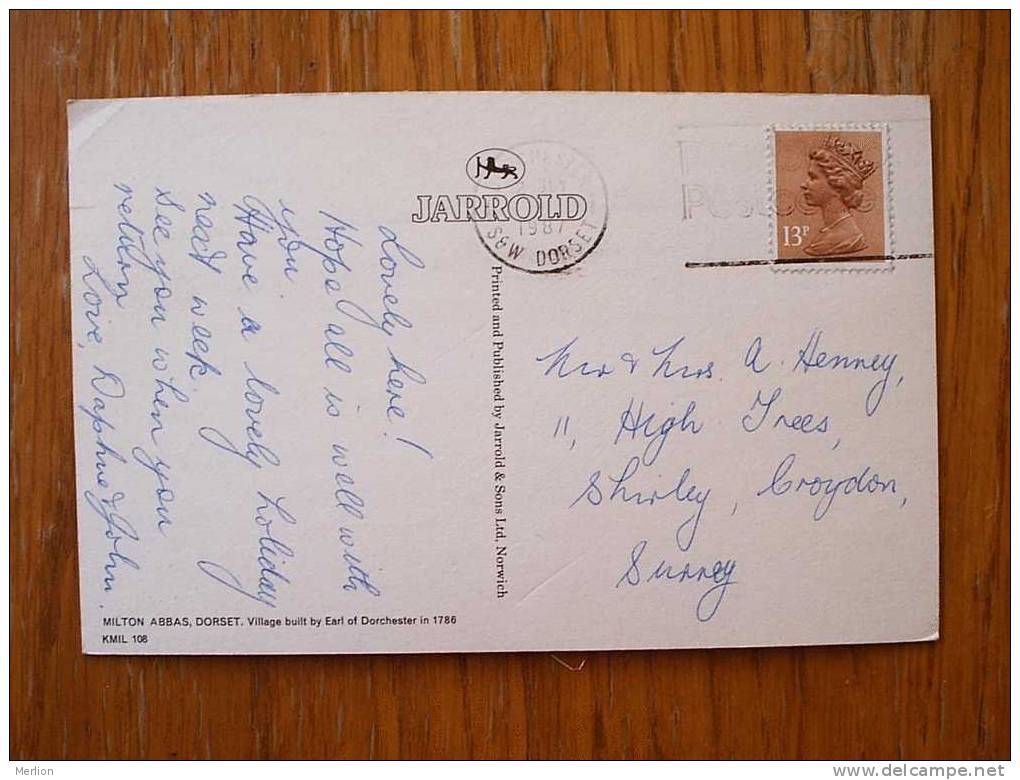 Lovely here!
Hope all is well with
you.
Have a lovely holiday
next week.
See you when you
return
Love, Daphne & John.
MILTON ABBAS, DORSET. Village built by Earl of Dorchester in 1786
KMIL 108
JARROLD
Printed and Published by Jarrold & Sons Ltd, Norwich
1987
S&W DORSET
13P
Mr & Mrs. A. Henney,
11, High Trees,
Shirley, Croydon,
Surrey
Merlion
delcampe.net